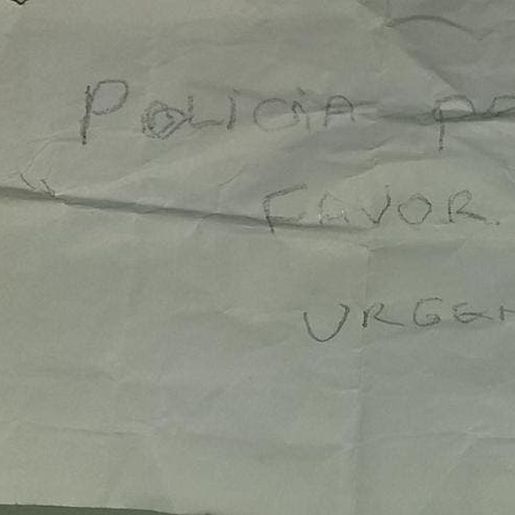 POLICIA PO
FAVOR.
URGEN